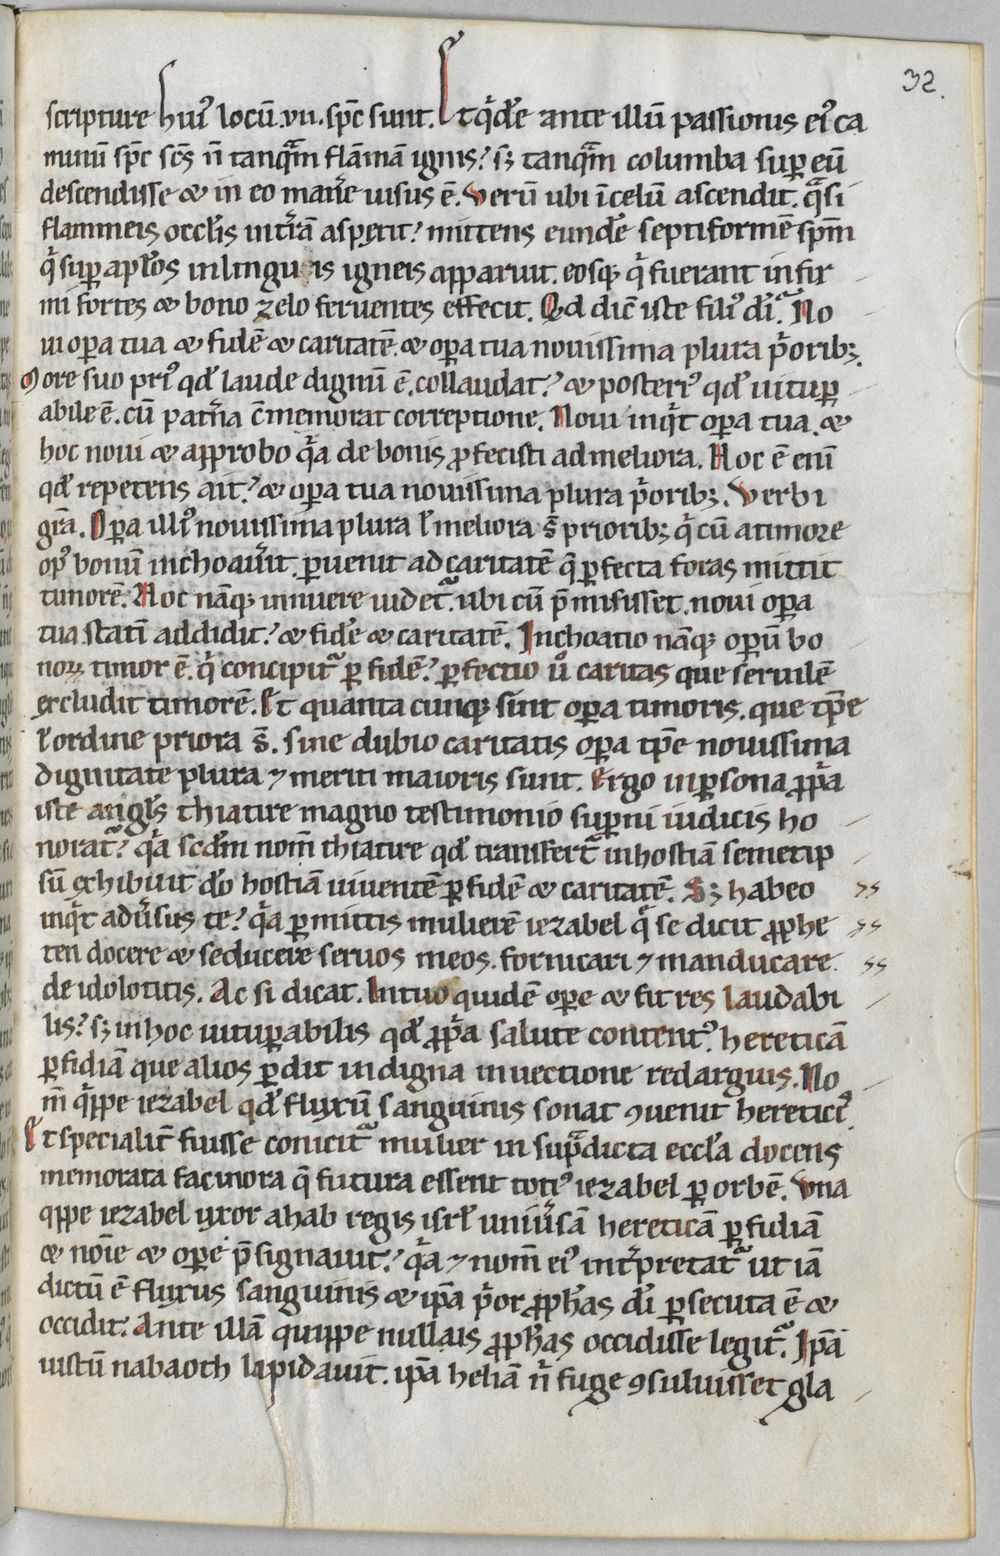 32.
scripture huiꝰ locū .vii. sp̄c sunt. Et q̇dē ante illū passionis eiꝰ ca
minū sp̄c sc̄s n̄ tanquā flāmā ignis? sꝫ tanquā columba suꝑ eū
descendisse & in eo man̄e uisus ē. Verū ubi ī celū ascendit. qͣsi
flammeis occl̓is int̓rā aspexit? mittens eundē septiformē sp̄m
q̇ suꝑ apl̓os in linguis igneis apparuit. eosqꝫ q̇ fuerant infir
mi fortes & bono zelo feruentes effecit. Qd dic̄ iste filiꝰ dī. No
ui oꝑa tua & fidē & caritatē. & oꝑa tua nouissima plura p̓oribꝫ.
More suo priꝰ qd̓ laude dignū ē. collaudat? & posteriꝰ qd̓ uituꝑ
abile ē. cū pat̓na c̄memorat correptione. Noui inq̇t oꝑa tua. &
hoc noui & approbo qͣ de bonis ꝓfecisti ad meliora. Hoc ē enī
qd̓ repetens ait? & oꝑa tua nouissima plura p̓oribꝫ. Verbi
gr̄a. Oꝑa illiꝰ nouissima plura l̓ meliora s̄ prioribꝫ q̇ cū a timore
opꝰ bonū inchoau̓it. ꝑuenit ad caritatē q̄ ꝑfecta foras mittit
timorē. Hoc nāqꝫ innuere uidetᷣ. ubi cū p̄misisset. noui oꝑa
tua statī addidit? & fidē & caritatē. Inchoatio nāqꝫ oꝑū bo
noꝝ timor ē. q̇ concipitᷣ ꝑ fidē? ꝑfectio u̓o caritas que seruilē
excludit timorē. Et quanta cunqꝫ sint oꝑa timoris. que tp̄e
l̓ ordine priora s̄. sine dubio caritatis oꝑa tp̄e nouissima
dignitate plura ⁊ meriti maioris sunt. Ergo in ꝑsona ꝓp̓a
iste angl̓s thiatire magno testimonio suꝑni iudicis ho
noratᷣ? qͣ scd̓m nom̄ thiatire qd̓ transfertᷣ in hostiā semetip
sū exhibuit dō hostiā uiuentē ꝑ fidē & caritatē. Sꝫ habeo
inq̇t adu̓sus te? qͣ ꝑmittis mulierē iezabel qͤ se dicit ꝓphe
ten docere & seducere seruos meos. fornicari ⁊ manducare
de idolotitis. Ac si dicat. In tuo quidē oꝑe & fit res laudabi
lis? sꝫ in hoc uituꝑabilis qd̓ ꝓp̓a salute contentꝰ. hereticā
ꝑfidiā que alios ꝑdit indigna inuectione redarguis. No
m̄ q̇ppe iezabel qd̓ fluxū sanguinis sonat ꝯuenit hereticꝭ.
Et specialit̄ fuisse conicitᷣ mulier in supͣdicta eccl̓a docens
memorata facinora q̄ futura essent totiꝰ iezabel ꝑ orbē. Vna
qppe iezabel uxor ahab regis isrl̓ uniu̓sā hereticā ꝑfidiā
& noīe & oꝑe p̄signauit? qͣ ⁊ nom̄ eiꝰ int̓pretatᷣ ut iā
dictū ē fluxus sanguinis & ip̄a p̓or ꝓph̓as dī ꝑsecuta ē &
occidit. Ante illā quippe nullā is ꝓph̓as occidisse legitᷣ. Ip̄a
iustū nabaoth lapidauit. ip̄a heliā n̓ fuge ꝯsuluisset gla